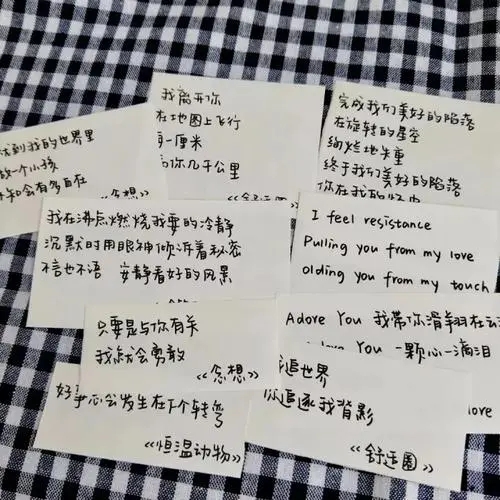 找到我的世界里
做一个小孩
知会有多自在
《念想》
我离开你
在地图上飞行
每一厘米
离你几千公里
《舒适圈》
完成我们美好的陷落
在旋转的星空
绚烂地失重
终于我们美好的陷落
你在我的怀中
我在沸点燃烧我要的冷静
沉默时用眼神倾诉着秘密
不言也不语 安静看好的风景
I feel resistance
Pulling you from my love
olding you from my touch
只要是与你有关
我就会勇敢
《念想》
Adore You 我带你滑翔在云
love You 一颗心一滴泪
dore
追世界
你追逐我背影
《舒适圈》
好事总会发生在下个转弯
《恒温动物》